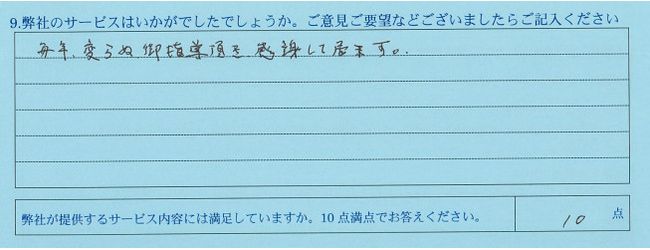 9.弊社のサービスはいかがでしたでしょうか。ご意見ご要望などございましたらご記入ください
毎年、変らぬ御指導頂き感謝して居ます。
弊社が提供するサービス内容には満足していますか。10点満点でお答えください。
10 点